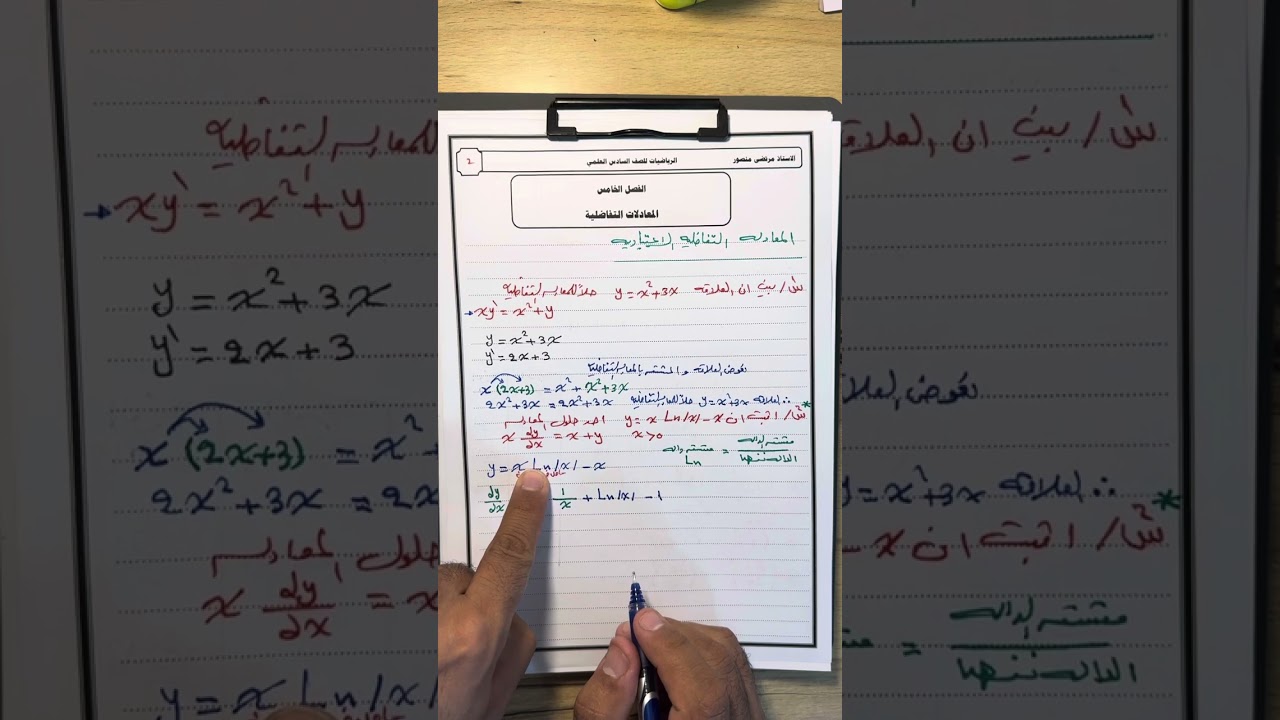 الاستاذ مرتضى منصور الرياضيات للصف السادس العلمي 2
الفصل الخامس
المعادلات التفاضلية
المعادله التفاضليه الاعتياديه
س/ بين ان العلاقه y = x² + 3x حلاً للمعادله التفاضليه
xy' = x² + y
y = x² + 3x
y' = 2x + 3
نعوض العلاقه و المشتقه بالمعادله التفاضليه
x (2x+3) = x² + x² + 3x
2x² + 3x = 2x² + 3x ∴ العلاقه y = x² + 3x حلاً للمعادله التفاضليه
* س/ اثبت ان y = x Ln|x| - x احد حلول المعادله
x dy/dx = x + y x>0
مشتقه داله Ln = مشتقه الداله / الداله نفسها
y = x Ln|x| - x
dy/dx 1/x + Ln|x| - 1